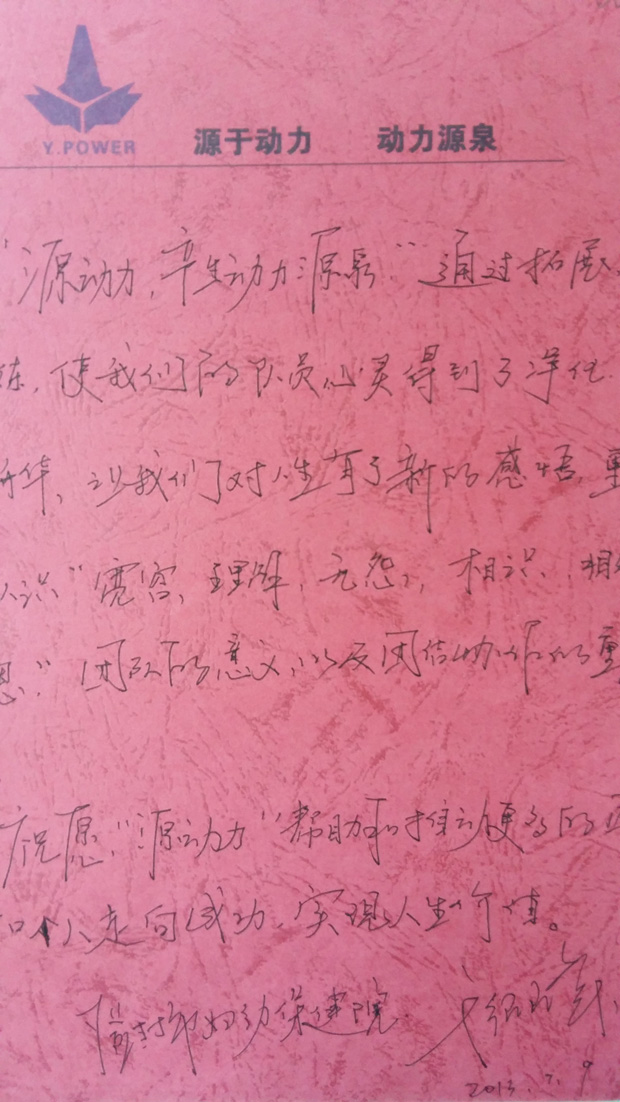 Y.POWER
源于动力 动力源泉
"源动力,产生动力源泉"通过拓展
练,使我们的队员心灵得到了净化
升华,让我们对人生有了新的感悟,重
认识"宽容、理解、无怨,相识、相
恩,"团队的意义,以及团结协作的重
祝愿,"源动力"帮助和推动更多的
个人走向成功,实现人生价值。
妇幼保健院
2013.7.9